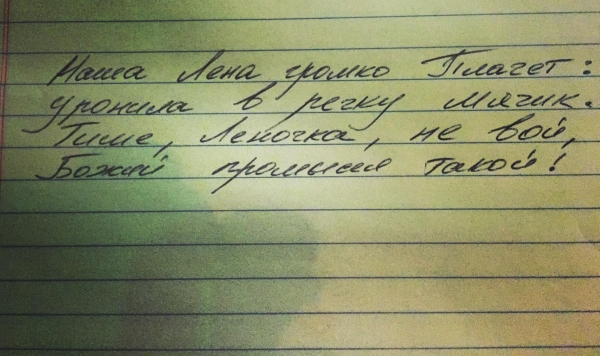 Наша Лена громко Плачет:
уронила в речку мячик.
Тише, Леночка, не вой,
Божий промысел такой!